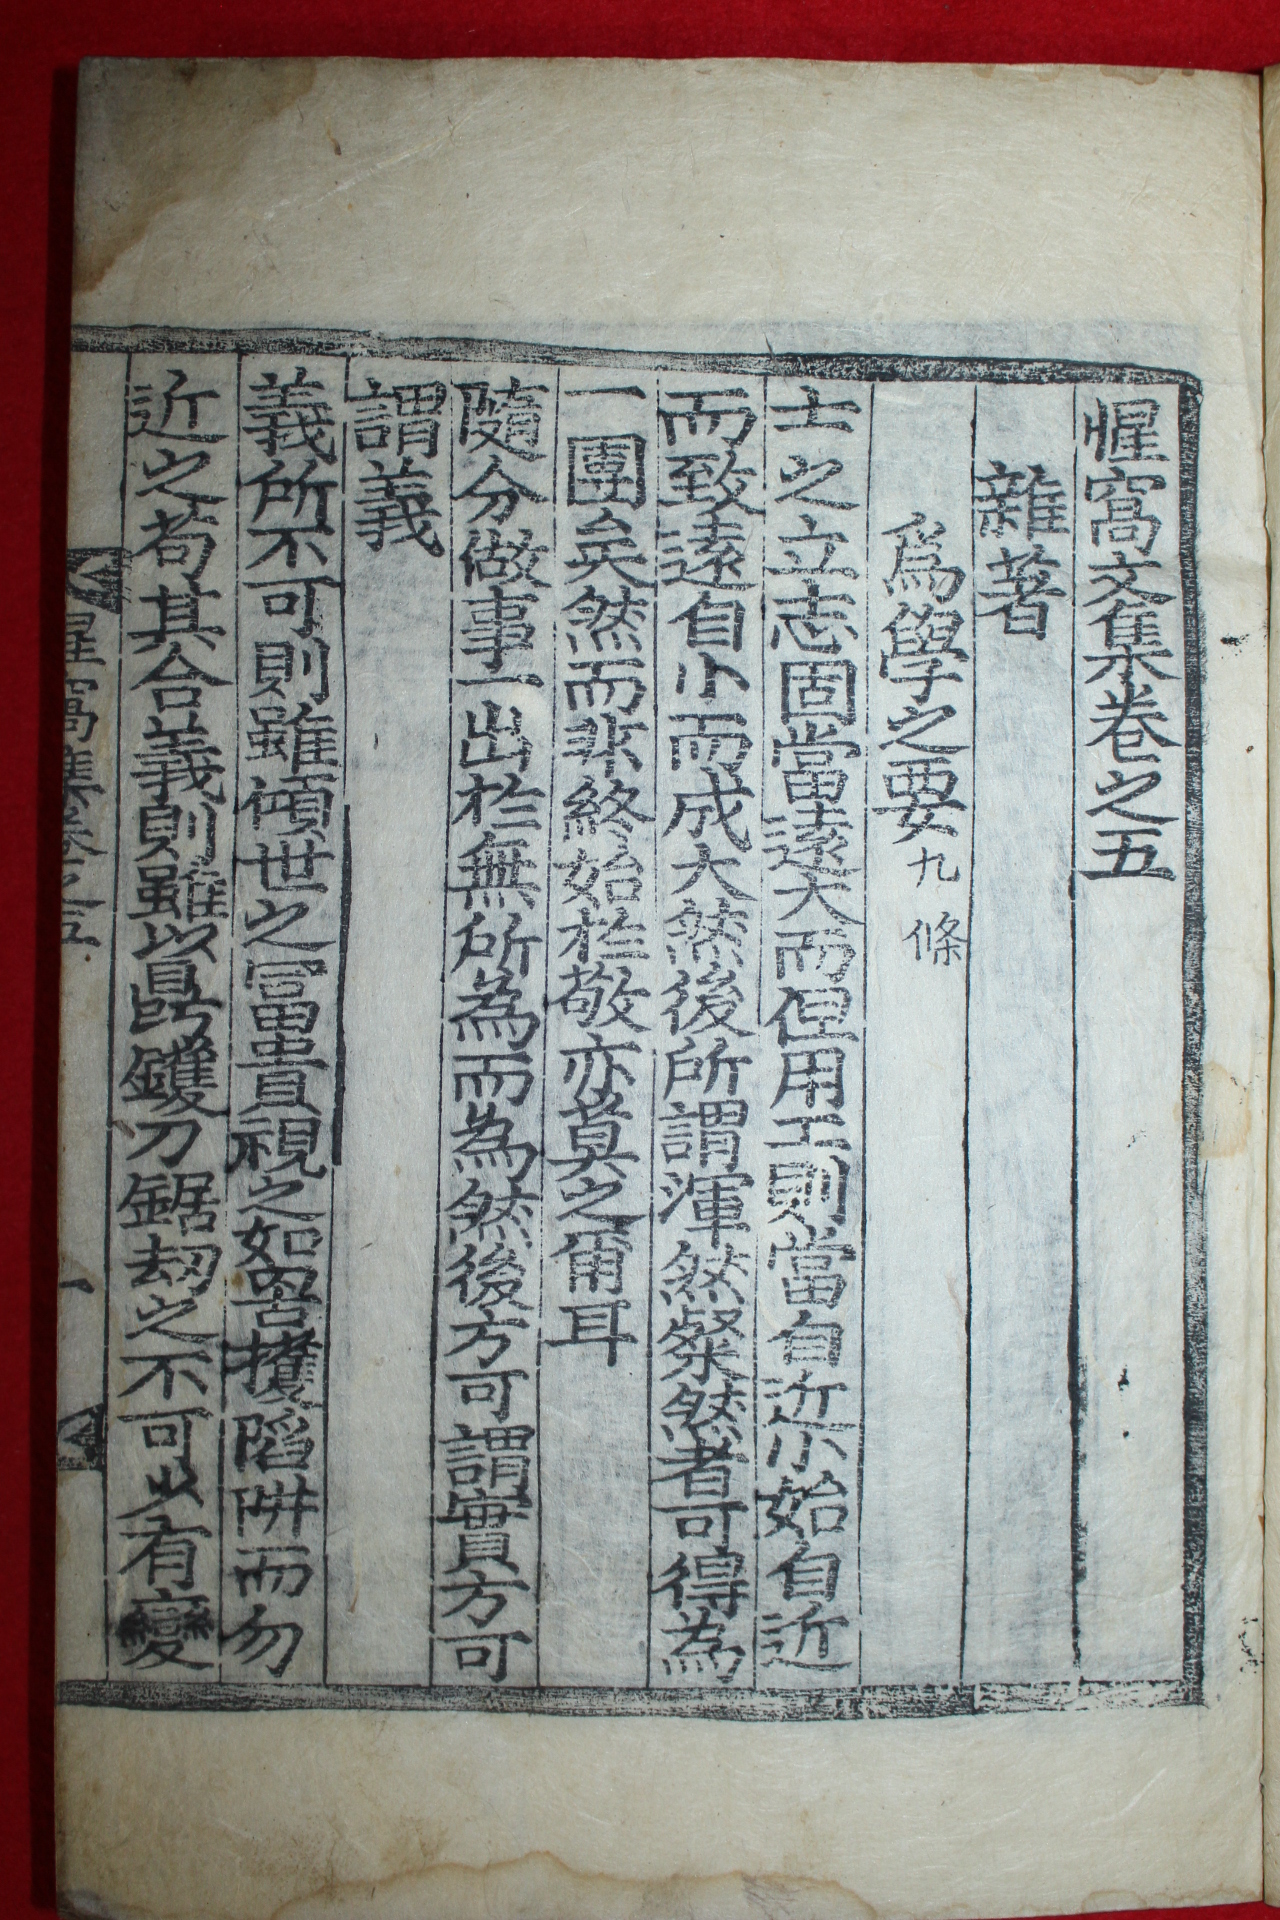 惺窩文集卷之五
雜著
爲學之要九條
士之立志固當遠大而但用工則當自近小始自近
而致遠自小而成大然後所謂渾然粲然者可得為
一團矣然而非終始於敬亦莫之甭耳
隨分做事一出於無所為而為然後方可謂實方可
謂義
義所不可則雖傾世之富貴視之如罟擭陷阱而勿
近之苟其合義則雖以鼎鑊刀鋸劫之不可少有變
惺窩集卷之五
一